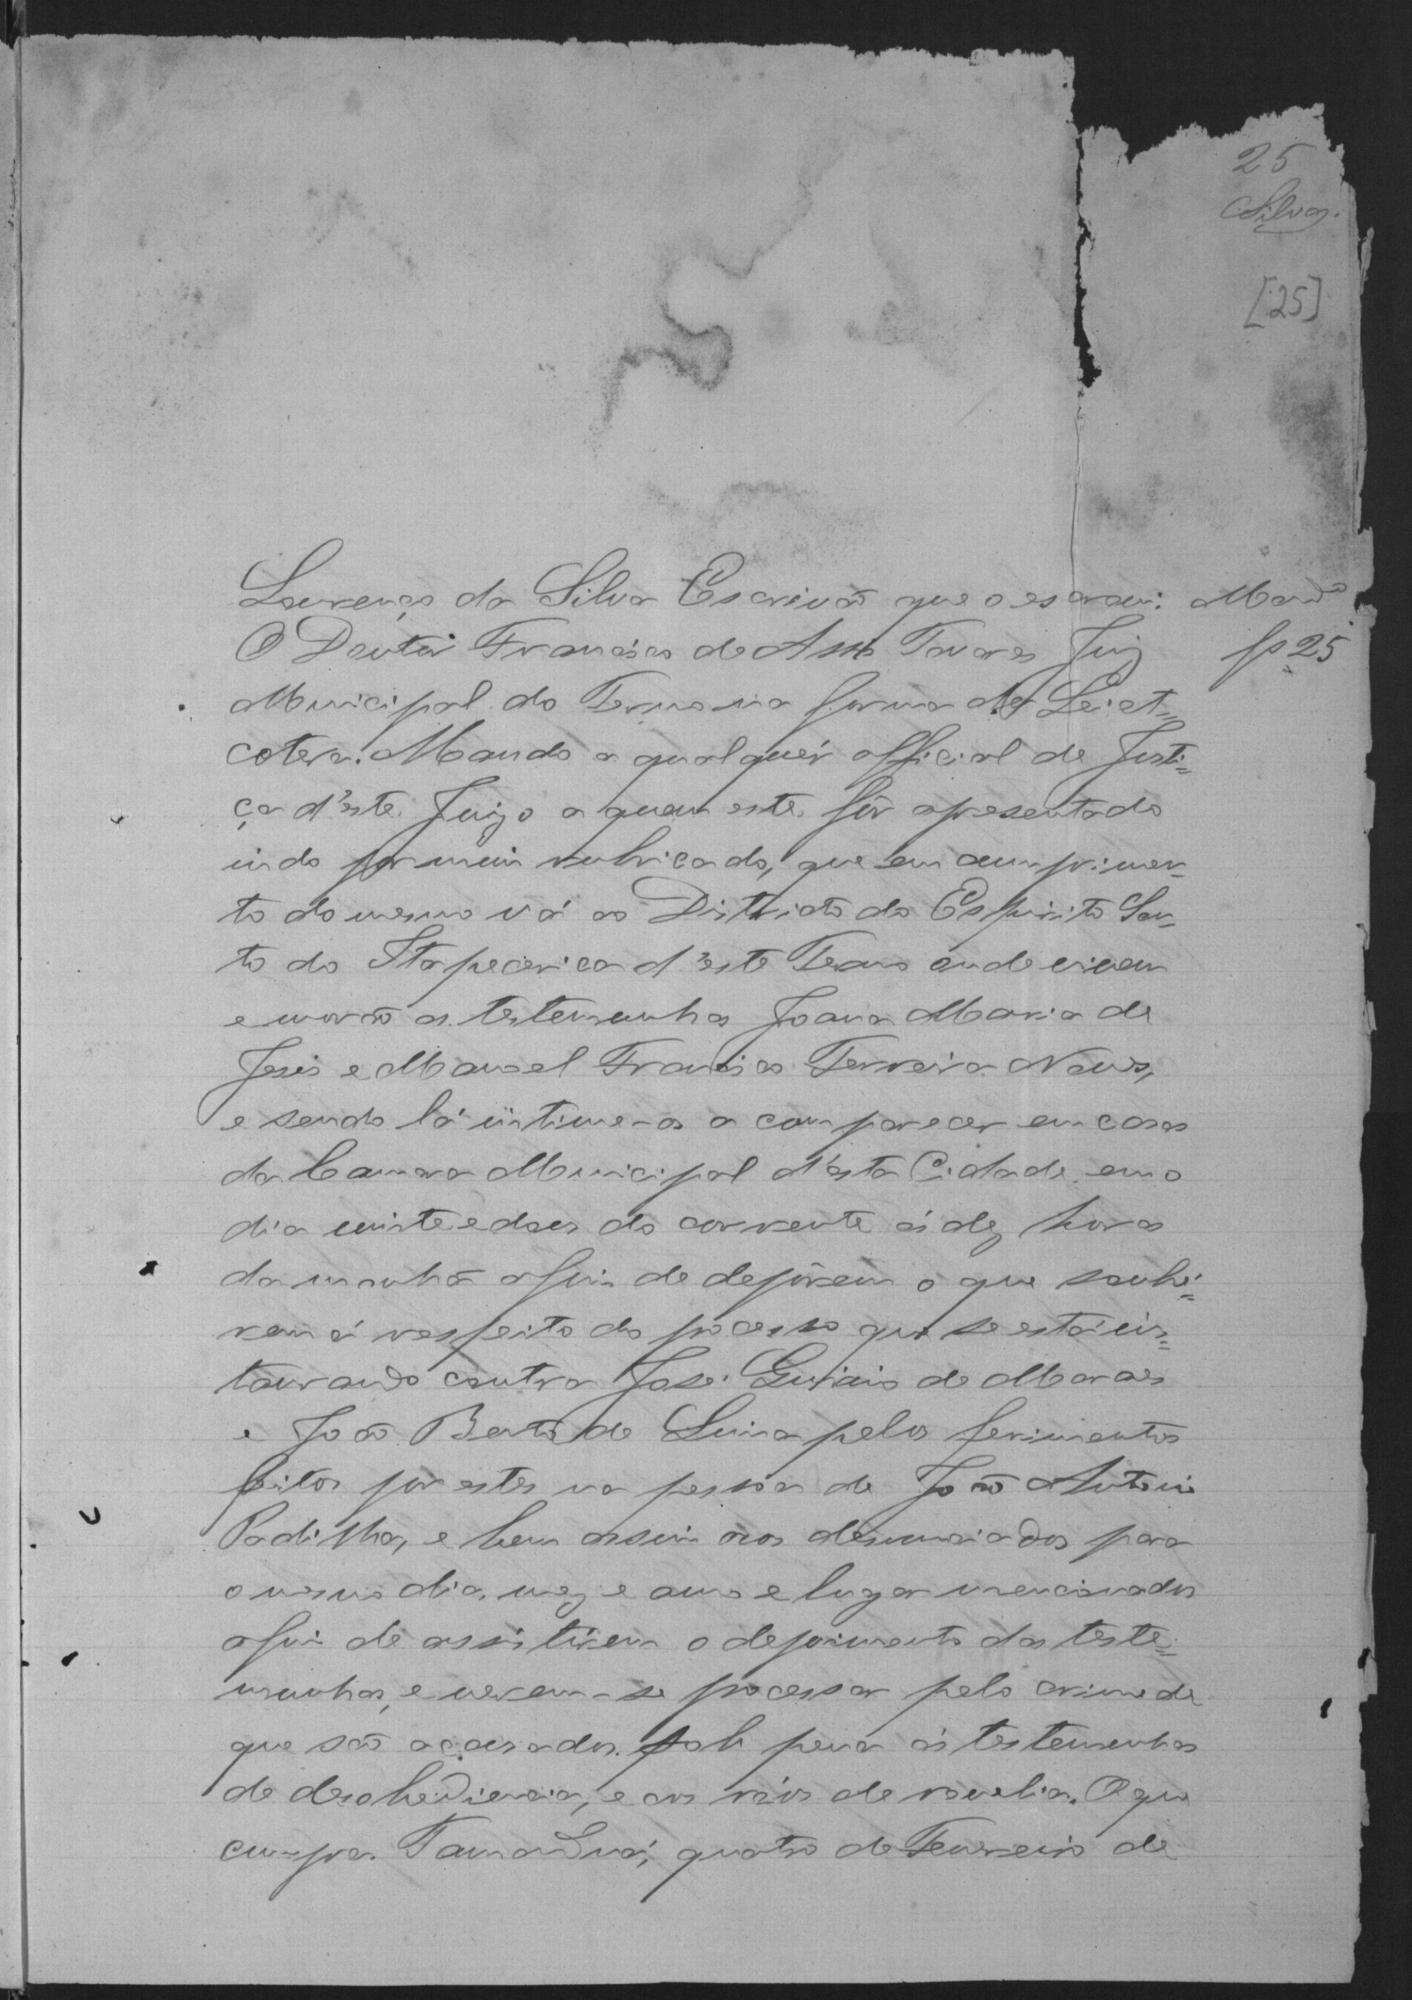 25
Silva.
[25]
Lourenço da Silva Escrivão que o escrevi. Mando
O Doutor Francisco de Assis Tavares Juiz fs 25
Municipal do Termo na forma da Lei et=
cetera. Mando a qualquér official de Justi=
ça d'este Juizo a quem este fôr apresentado
indo por mim rubricado, que em cumprimen=
to do mesmo vá ao Districto do Espirito San=
to do Itapecerica d'este Termo onde vivem
e morão as testemunhas Joana Maria de
Jesus e Manoel Francisco Ferreira Novais,
e sendo lá intime-as a comparecer em casas
da Camara Municipal d'esta Cidade em o
dia vinte e dois do corrente ás dez horas
da manhã afim de depôrem o que soubé=
rem á respeito do processo que se está ins=
taurando contra José Gervasio de Moraes
e João Bento de Lima pelos ferimentos
feitos por estes na pessôa de João Antonio
Padilha, e bem assim aos denunciados para
o mesmo dia, mez e anno e lugar mencionados
afim de assistirem o depoimento das teste=
munhas, e verem-se processar pelo crime de
que são accusados sob pena ás testemunhas
de desobediencia, e aos réos de revelia. O que
cumpra. Tamanduá, quatro de Fevereiro de